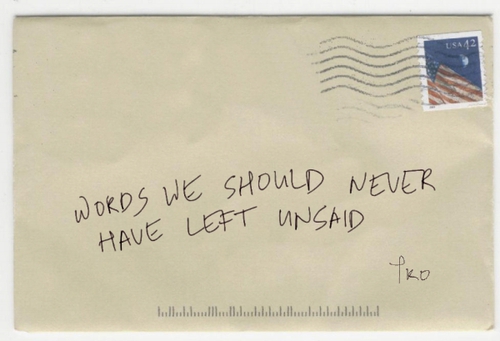 USA 42
WORDS WE SHOULD NEVER
HAVE LEFT UNSAID